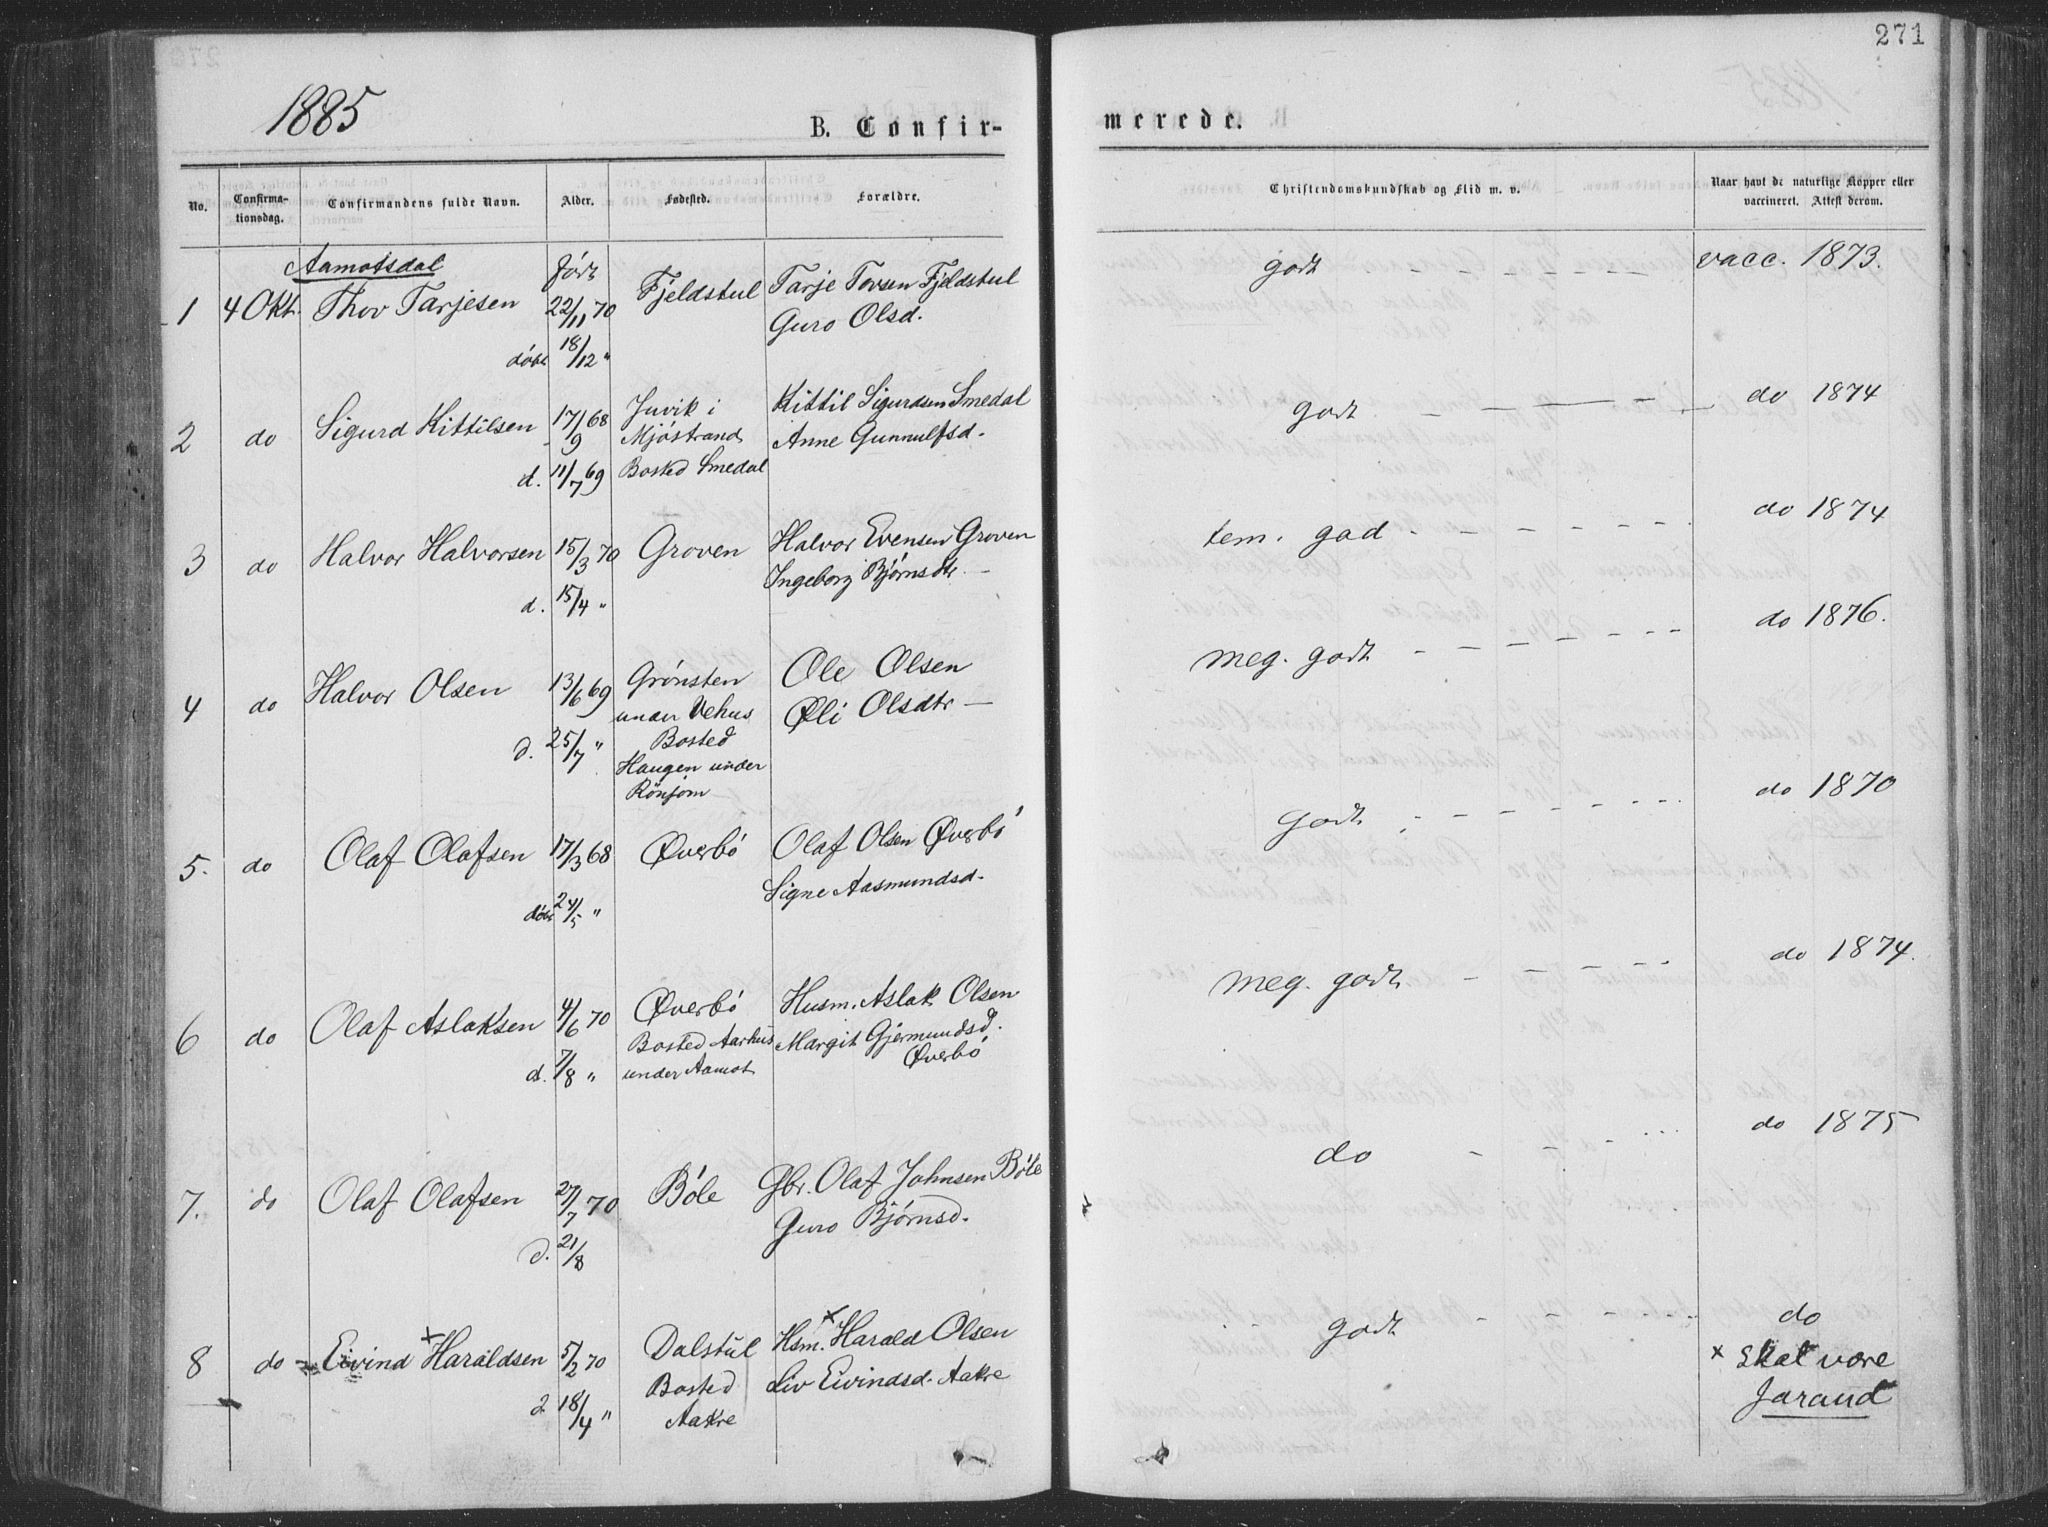 271
1885
B. Confir-
merede.
No.
Confirma-
tionsdag.
Confirmandens fulde Navn.
Alder.
Fødested.
Forældre.
Christendomskundskab og Flid m. v.
Naar havt de naturlige Kopper eller
vaccineret. Attest derom.
Aamotsdal
født
1 4 Okt. Thov Tarjesen 22/11 70 Fjeldstul Tarje Tovsen Fjeldstul godt - - - - - - vacc. 1873.
Guro Olsd.
döbt 18/12 "
2 do Sigurd Kittilsen 17/9 68 Juvik i Kittil Sigurdsen Smedal godt - - - - do 1874
Mjöstrand Anne Gunnulfsd.
d. 11/7 69 Bosted Smedal
3 do Halvor Halvorsen 15/3 70 Groven Halvor Evensen Groven tem. god - - - - - - do 1874
Ingeborg Bjørnsdtr. -
d. 15/4 "
4 do Halvor Olsen 13/6 69 Grönsten Ole Olsen meg. godt - - - - - - do 1876.
under Vehus Øli Olsdtr -
d. 25/7 " Bosted
Haugen under
Rönjom
5. do Olaf Olafsen 17/3 68 Øverbö Olaf Olsen Øverbö godt - - - - - - do 1870
Signe Aasmundsd.
döbt 24/5 "
6 do Olaf Aslaksen 4/6 70 Øverbö Husm. Aslak Olsen meg. godt - - - - - do 1874.
Bosted Aarhus Margit Gjermundsd.
d. 7/8 " under Aamot Øverbö
7. do Olaf Olafsen 27/7 70 Böle Gbr. Olaf Johnsen Böle do - - - - do 1875
Guro Bjørnsd.
d. 21/8
8 do Eivind x Haraldsen 5/2 70 Dalstul Hsm. x Harald Olsen godt - - - - do
Bosted Liv Eivindsd. Aakre x Skal være
d 18/4 " Aakre Jarand